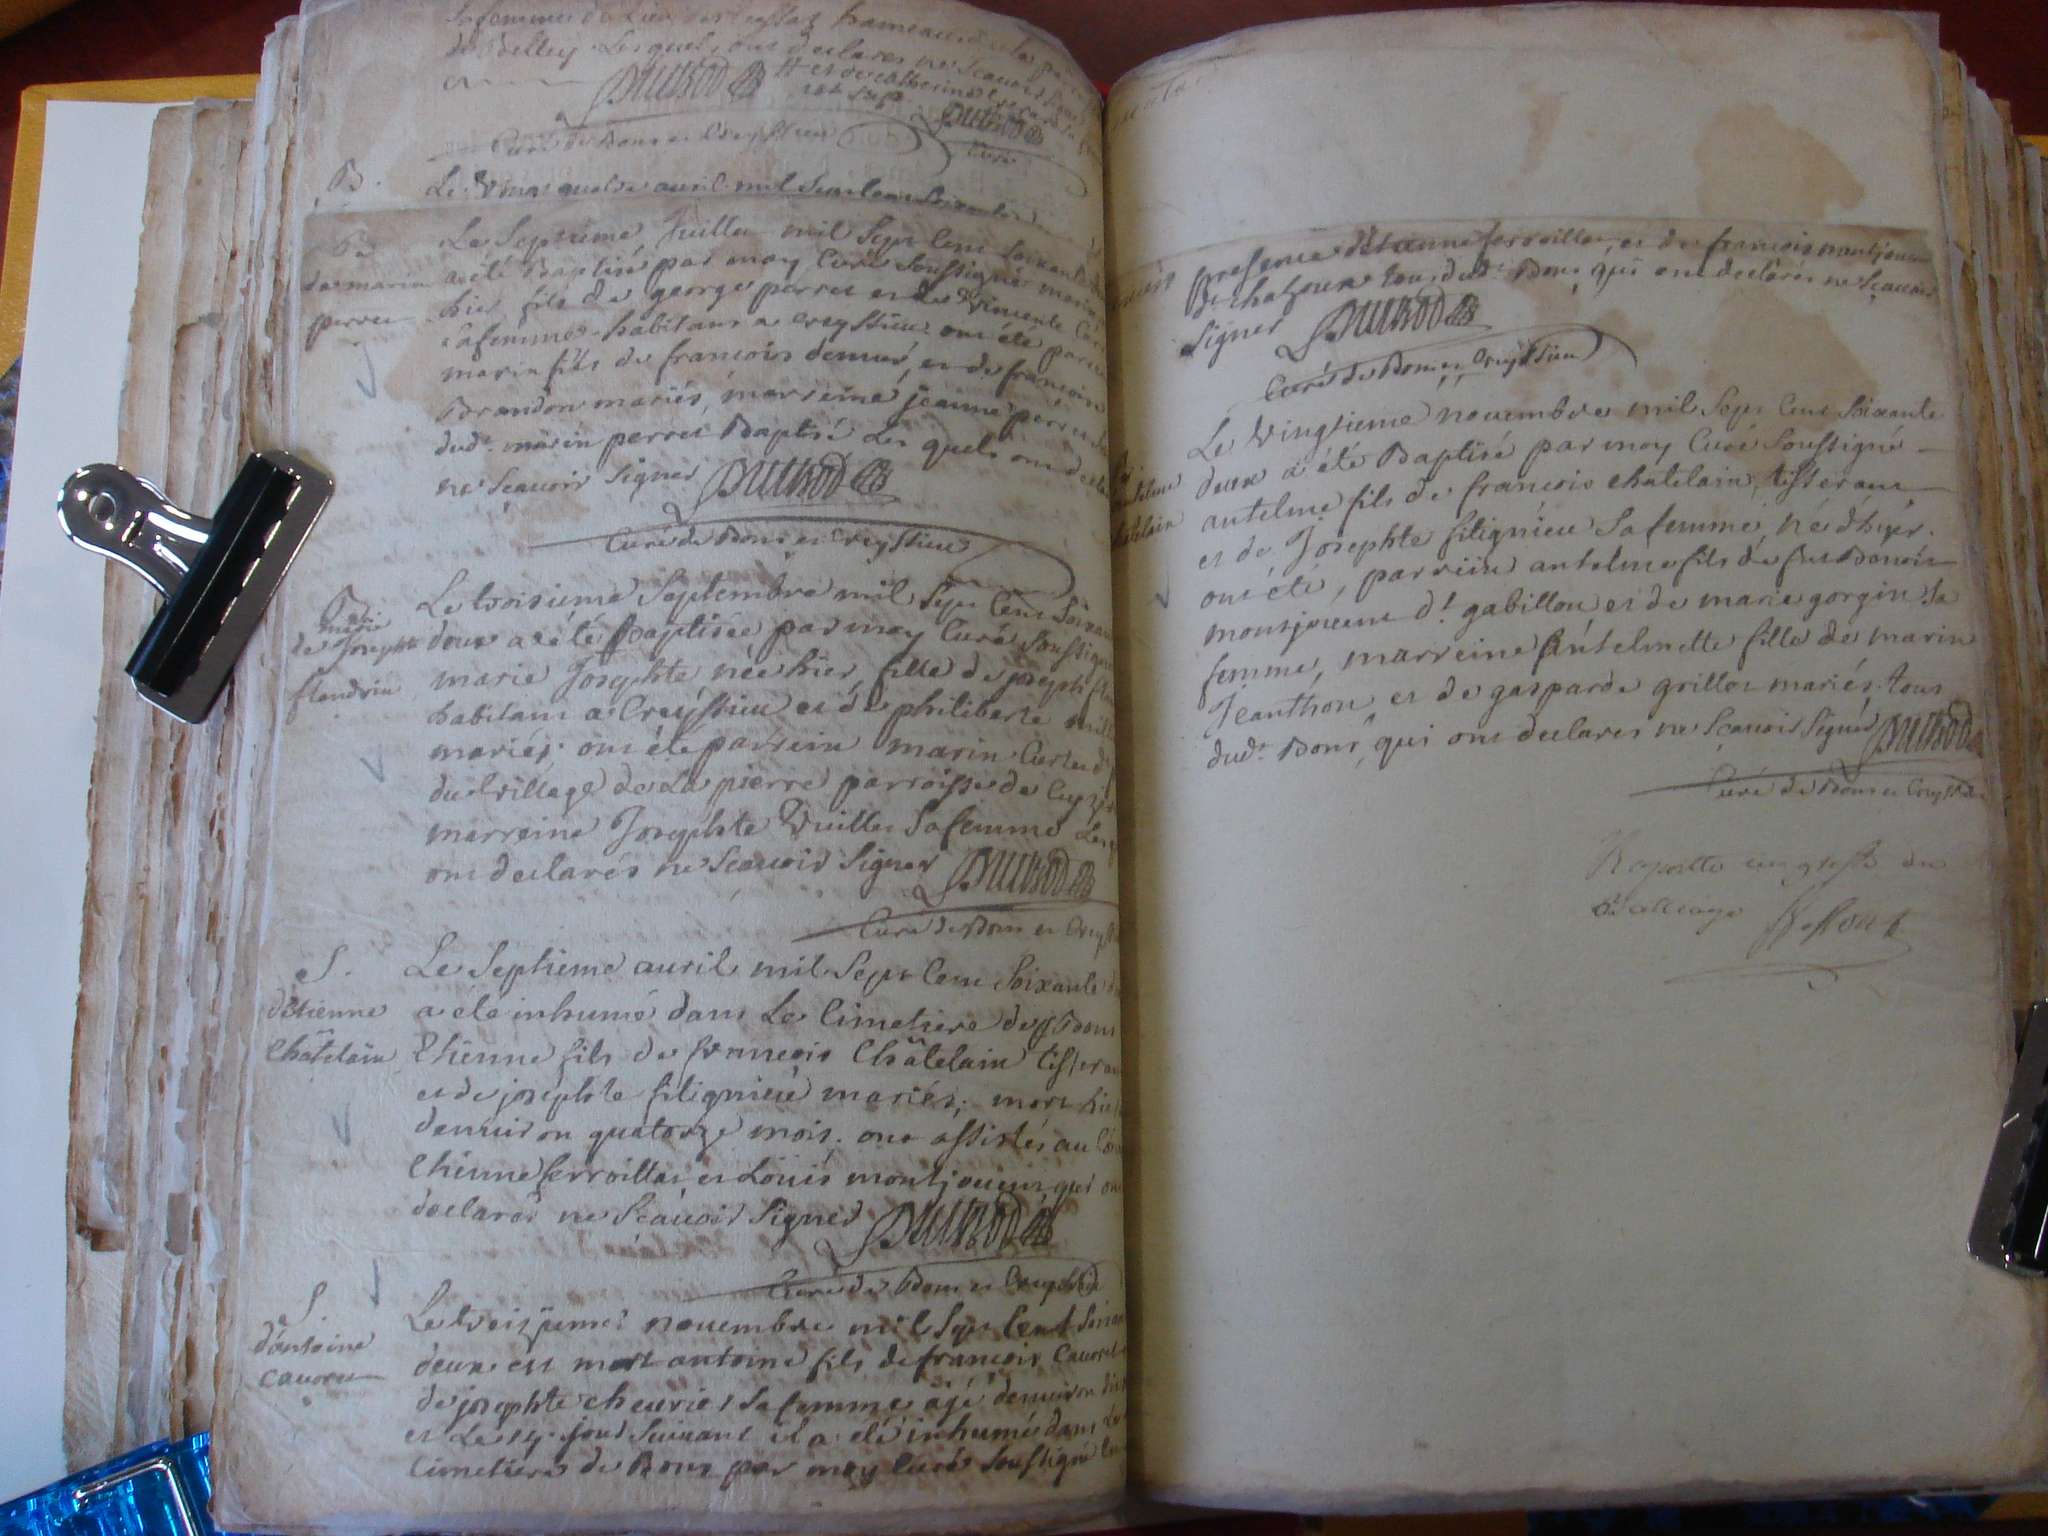 sa femme du lieu de hameau de la
de Belley Lesquels ont declares ne scavoir
DUTROD
Curé de Bons et Creyssieu
DUTROD
Curé
B. Le Vingt quatre avril mil sept cent soixante
B.
de marin
perret
Le Septieme Juillet mil Sept Cent Soixante
a été Baptisé par moy Curé Soussigné marin
hier, fils de george perret et de Vincente
sa femme habitans a Creyssieu ont été parrein
marin fils de francois demuré, et de francoise
Brandon mariés, marreine jeanne perret
dudt. marin perret Baptisé Les quels ont
ne Scavoir Signer DUTROD
Curé de Bons et Creyssieu
B.
de marie
Josephte
flandrin
Le troisieme Septembre mil Sept Cent Soixante
deux a été Baptisée par moy Curé Soussigné
marie Josephte née hier, fille de joseph
habitans a Creyssieu et de philiberte
mariés; ont été parrein marin
du Village de La pierre parroisse de
marreine Josephte Vuillet Sa femme
ont declarés ne Scavoir Signer DUTROD
Curé de Bons et
S.
d'étienne
Châtelain
Le Septieme avril mil Sept Cent Soixante
a été inhumé dans Le Cimetiere de Bons
Etienne fils de francois Châtelain tisseran
et de josephte fitignieu mariés; mort hier
denviron quatorze mois; ont assistés au
Etienne ferroillet et Louis montjouent qui ont
declarés ne Scavoir Signer DUTROD
Curé de Bons et Creyssieu
S.
d'antoine
cavoret
Le treizieme novembre mil Sept Cent Soixante
deux est mort antoine fils de francois Cavoret
de josephte chevrier sa femme agé denviron
et Le 14. jour Suivant il a été inhumé dans Le
Cimetiere de Bons par moy Curé Soussigné
presence d'Etienne ferroillet, et de francois montjouent
de chazoux tous dudt. Bons qui ont declarés ne Scavoir
Signer DUTROD
Curé de Bons et Creyssieu
B.
d'antelme
chatelain
Le Vingtieme novembre mil Sept Cent Soixante
deux a été Baptisé par moy Curé Soussigné
antelme fils de francois chatelain, tisserant
et de Josephte fitignieu Sa femme, né d'hyer.
ont été, parrein antelme fils de feu Benoit
montjouent dt. gabillon et de marie gorgin Sa
femme, marreine Antelmette fille de marin
Jeanthon et de gasparde grillot mariés. tous
dudt. Bons, qui ont declarés ne Scavoir Signer DUTROD
Curé de Bons et Creyssieu
Raporté au greffe du
Balliage